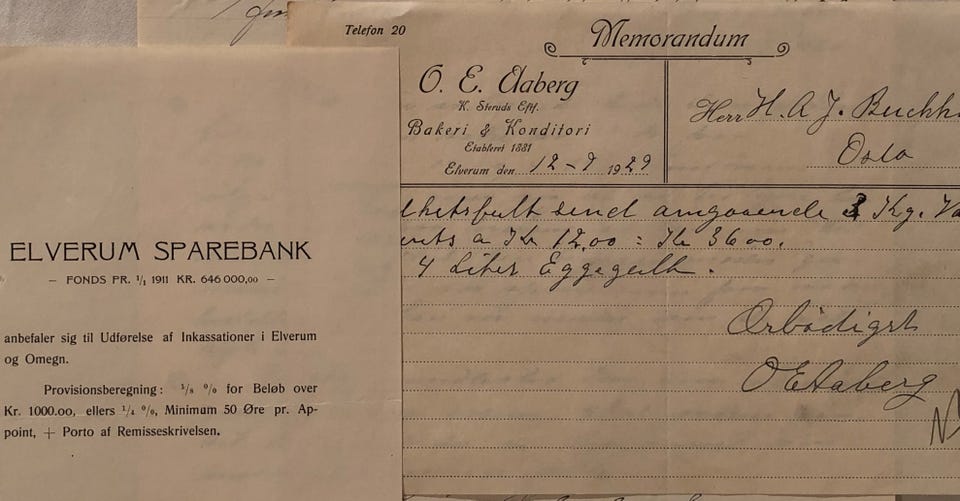 ELVERUM SPAREBANK
— FONDS PR. 1/1 1911 KR. 646 000,00 —
anbefaler sig til Udførelse af Inkassationer i Elverum
og Omegn.
Provisionsberegning: 1/8 % for Beløb over
Kr. 1000.00, ellers 1/4 %, Minimum 50 Øre pr. Ap-
point, + Porto af Remisseskrivelsen.
Telefon 20
Memorandum
O. E. Aaberg
K. Steruds Eftf.
Bakeri & Konditori
Etablert 1881
Elverum den 12-9 1929
Herr H. A. J. Buchh
Oslo
send omgaaende 3 Kg. Va
a Kr 12,00 = Kr 3600.
4 Liter Eggegulh.
Ærbødigst
O E Aaberg